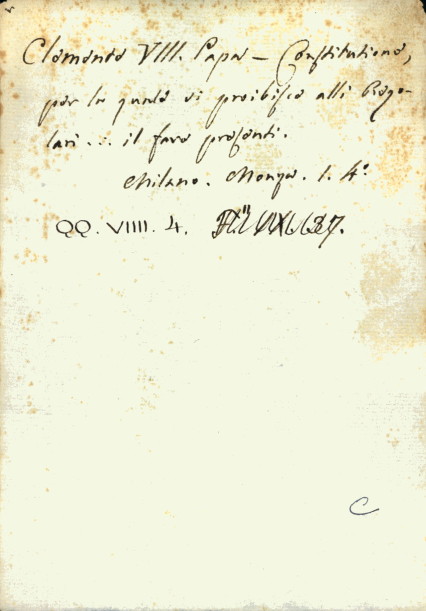 Clemente VIII. Papa – Constitutione,
per la quale si proibisce alli Rego-
lari ... il fare presenti.
Milano. Monza. 1. 4.º
QQ. VIIII. 4.
C